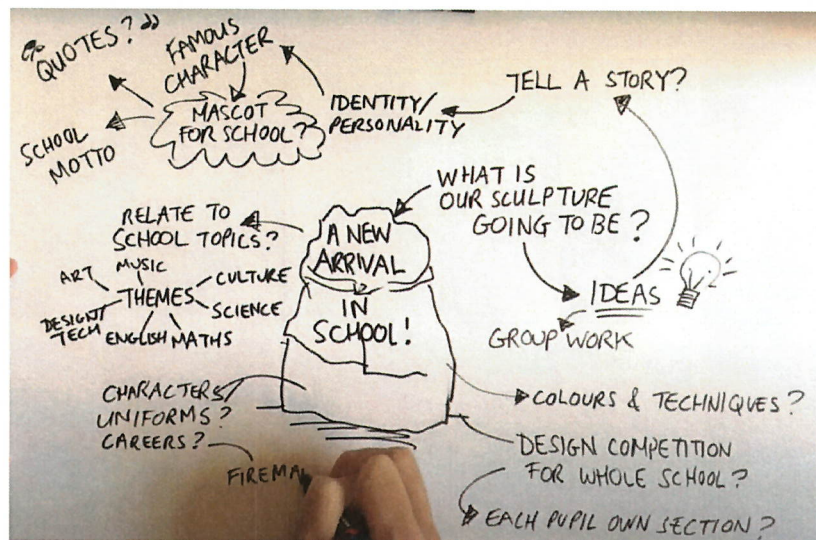 "QUOTES?"
FAMOUS
CHARACTER
MASCOT
FOR SCHOOL?
IDENTITY/
PERSONALITY
TELL A STORY?
SCHOOL
MOTTO
WHAT IS
OUR SCULPTURE
GOING TO BE?
RELATE TO
SCHOOL TOPICS?
A NEW
ARRIVAL
IN
SCHOOL!
ART
MUSIC
CULTURE
THEMES
SCIENCE
DESIGN/
TECH
ENGLISH
MATHS
IDEAS
GROUP WORK
CHARACTERS/
UNIFORMS?
CAREERS?
FIREMA
COLOURS & TECHNIQUES?
DESIGN COMPETITION
FOR WHOLE SCHOOL?
EACH PUPIL OWN SECTION?